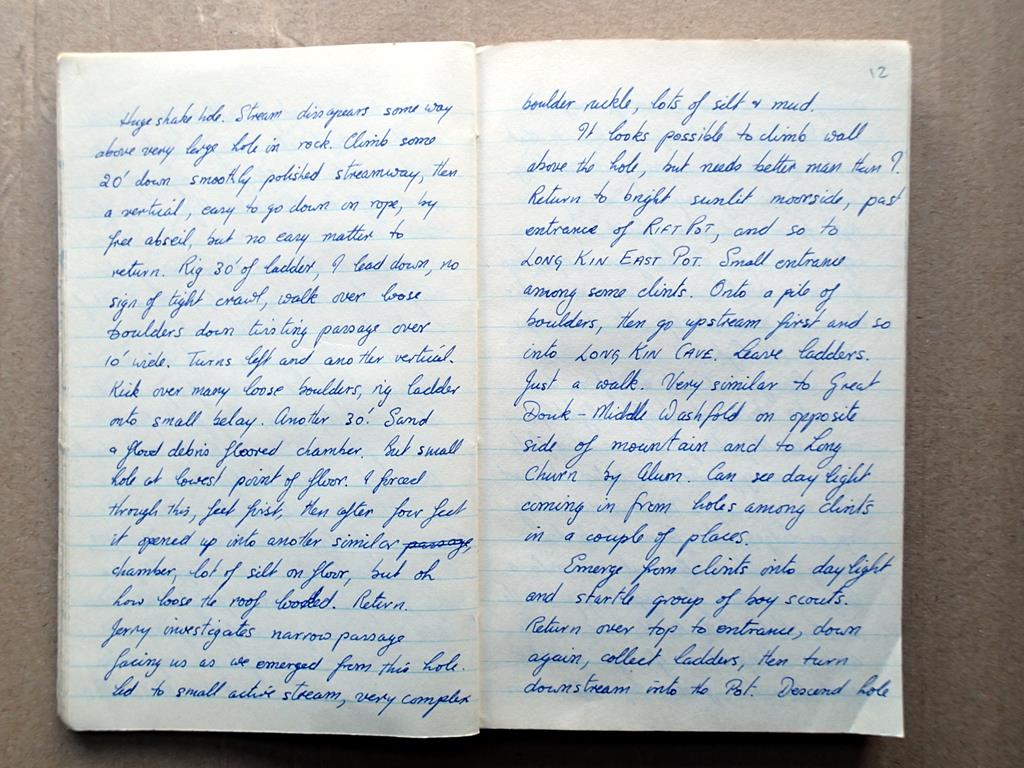 Huge shake hole. Stream dissapears some way
above very large hole in rock. Climb some
20' down smoothly polished streamway, then
a vertical, easy to go down on rope, by
free abseil, but no easy matter to
return. Rig 30' of ladder, I lead down, no
sign of tight crawl, walk over loose
boulders down twisting passage over
10' wide. Turns left and another vertical.
Kick over many loose boulders, rig ladder
onto small belay. Another 30'. Sand
& flood debris floored chamber. But small
hole at lowest point of floor. I forced
through this, feet first, then after four feet
it opened up into another similar passage,
chamber, lot of silt on floor, but oh
how loose the roof looked. Return.
Jerry investigates narrow passage
facing us as we emerged from this hole.
Led to small active stream, very complex
12
boulder ruckle, lots of silt & mud.
It looks possible to climb wall
above the hole, but needs better man than I.
Return to bright sunlit moorside, past
entrance of RIFT POT, and so to
LONG KIN EAST POT. Small entrance
among some clints. Onto a pile of
boulders, then go upstream first and so
into LONG KIN CAVE. Leave ladders.
Just a walk. Very similar to Great
Douk - Middle Washfold on opposite
side of mountain and to Long
Churn by Alum. Can see daylight
coming in from holes among clints
in a couple of places.
Emerge from clints onto daylight
and startle group of boy scouts.
Return over top to entrance, down
again, collect ladders, then turn
downstream into the Pot. Descend hole